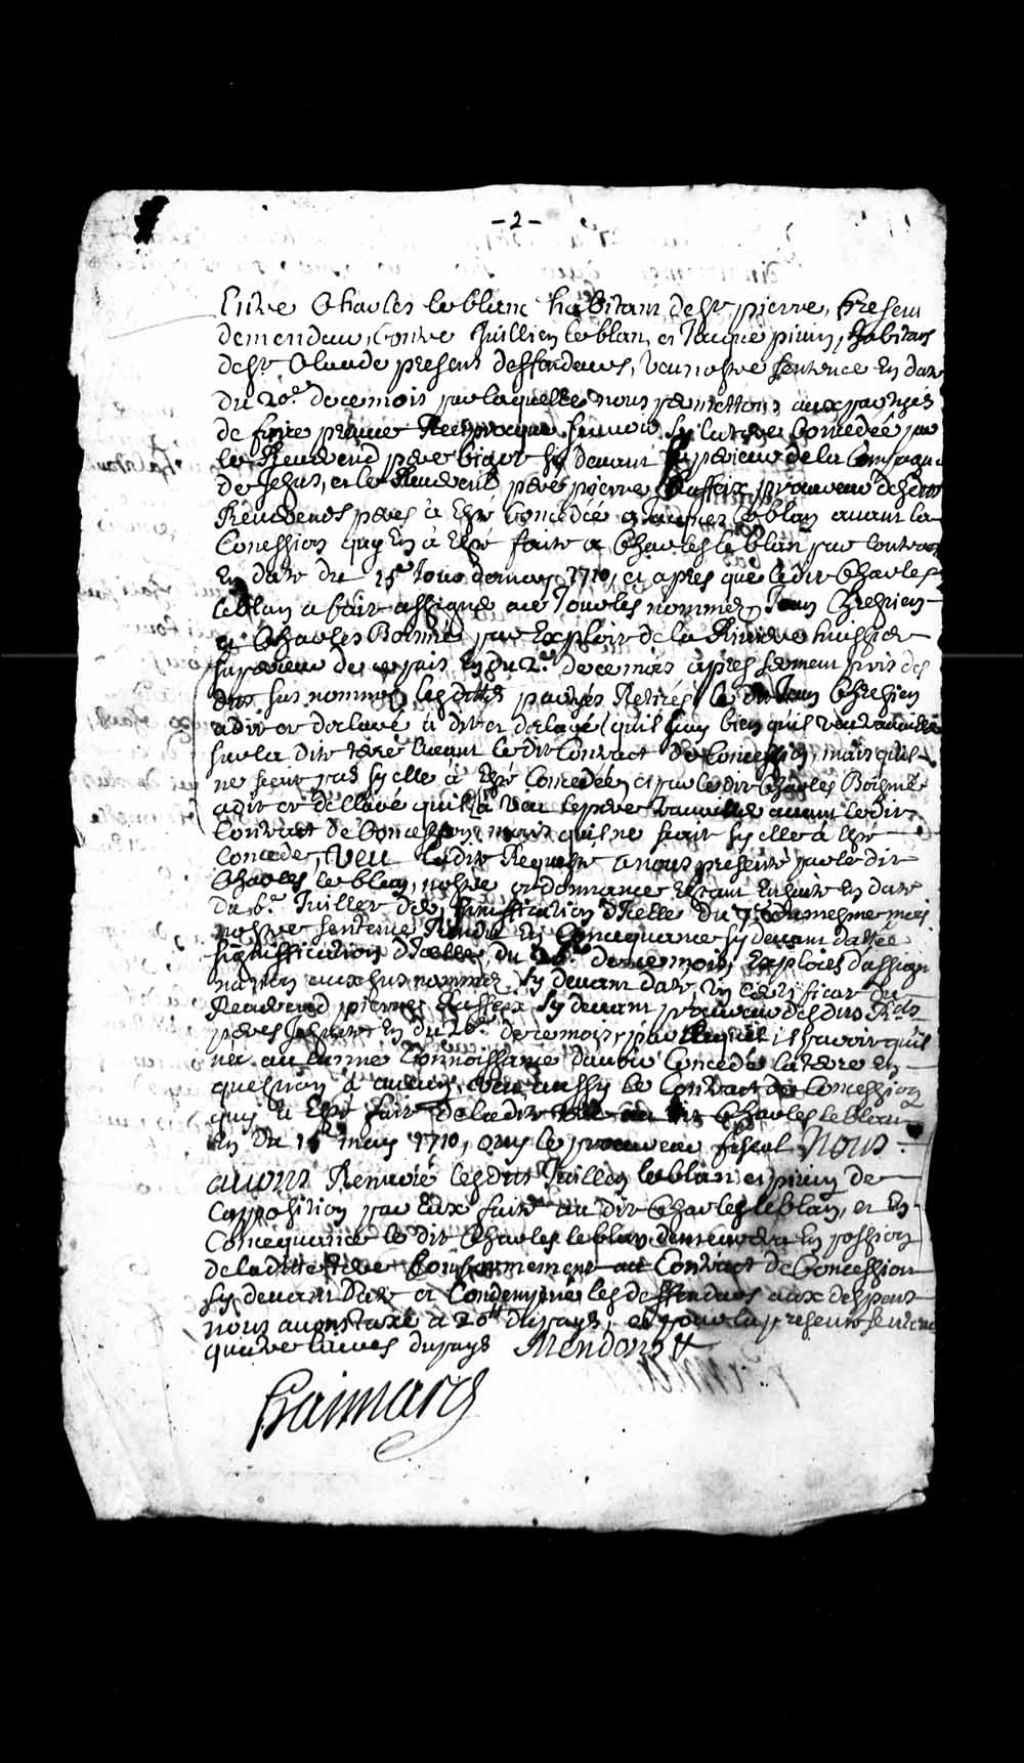 - 2 -
Entre Charles leblanc habitant de St pierre, present
demendeur, contre Juillien leblan et Jacque pivin, habitans
de St Claude present deffendeurs, veu nostre sentence en date
du 20e de ce mois par laquelle nous permettons aux parties
de faire preuve Reciproque scavoir sy la terre Concedée par
le Reverend pere bigot sy devant superieur de la Compagnie
de Jesus, et le Reverend pere pierre Raffeix procureur desdits
Reverends peres à Esté Concedée a leblan avant la
Conession quy En à Esté faite a Charles le blan par contract
En date du 15e may 1710, et apres que ledit Charles
leblan a fait assigné a ce Jour les nommez Jean Chrestien
et Charles Boismé par Exploit de la Riviere huissier
de ce pais En du 2e de ce mois apres serment pris des
dits sus nommez lesdittes parties Retirés le dit Jean Chrestien
a dit et declaré quil scay bien quil
sur la dite terre avant ledit Contract de Concession, mais quil
ne scait pas sy elle à Esté Concedée, et par ledit Charles Boismé
a dit et declaré quil à veu le pere travaille avant ledit
Contract de Concession mais quil ne scait sy elle à esté
Concedée, Veu ladite Requeste a nous presenté par ledit
Charles leblan, nostre ordonnance Estant Ensuite En date
du 6e Juillet der, siniffication dicelle du 7e du mesme mois
nostre sentence Rendu En Concequance sy devant dattée
signiffication dicelle du de ce mois, Exploict dassign
nation aux sus nommez sy devant daté, un certificat du
Reverend pierre Raffeix sy devant procureur desdits Rds
peres Jesuite En du 26e de ce mois par lequel il scavoir quil
na aucunne Connoissance davoir Concedé la terre En
question à aucun, veu aussy le Contract de Concession
quy a Esté fait de ladite terre au dit Charles leblan
En du 15e may 1710, ouy le procureur fiscal Nous
avons Renvoié lesdits Juillien leblan et pivin de
lopposition par Eux faite au dit Charles leblan, et En
Concequance le dit Charles leblan demeurera En possion
de laditte terre Conformement au Contract de Concession
sy devant Daté et Condempné les deffendeurs aux despens
nous avons taxé à 20tt du pays, et pour la presente sentence
quatre livres du pays Mendons &